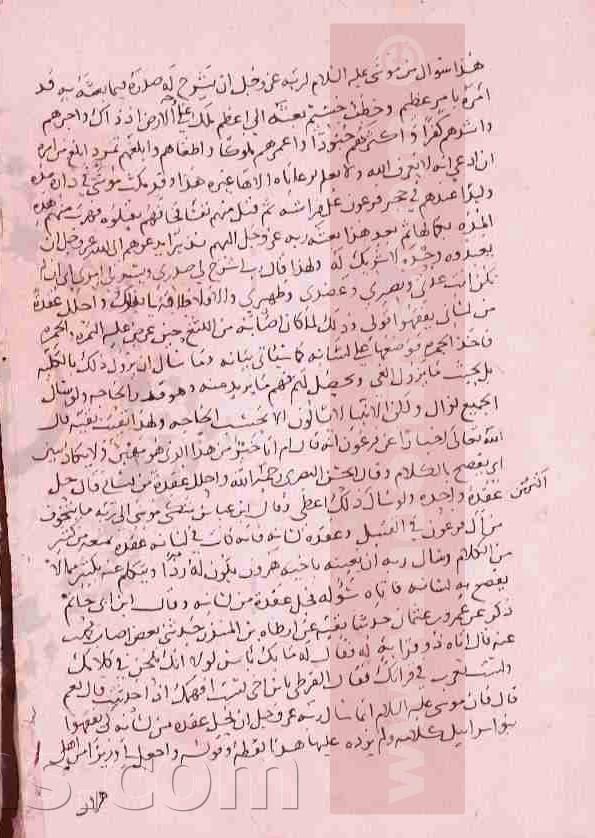 هذا سوال من موسى عليه السلام لربه عز وجل ان يشرح له صدره فيما بعثه به فانه قد
امره بامر عظيم وخطب جسيم بعثه الى اعظم ملك على وجه الارض اذ ذاك واجبرهم
واشدهم كفرا واكثرهم جنودا واعمرهم ملكا واطغاهم وابلغهم تمردا بلغ من امره
ان ادعى انه لا يعرف الله ولا يعلم لرعاياه الاها غيره هذا وقد مكث موسى في داره مدة
وليدا عندهم في حجر فرعون على فراشه ثم قتل منهم نفسا فخافهم ان يقتلوه فهرب منهم هذه
المدة بكمالها ثم بعد هذا بعثه ربه عز وجل اليهم نذيرا يدعوهم الى الله عز وجل ان
يعبدوه وحده لا شريك له ولهذا قال رب اشرح لي صدري ويسر لي امري اي ان لم
تكن انت عوني ونصيري وعضدي وظهيري والا فلا طاقة لي بذلك واحلل عقدة
من لساني يفقهوا قولي وذلك لما كان اصابه من اللثغ حين عرض عليه التمرة والجمرة
فاخذ الجمرة فوضعها على لسانه كما سياتي بيانه وما سال ان يزول ذلك بالكلية
بل بحيث ما يزول العي ويحصل لهم فهم ما يريد منه وهو قدر الحاجة ولو سال
الجميع لزال ولكن الانبيا لا يسالون الا بحسب الحاجة ولهذا بقيت بقية قال
الله تعالى اخبارا عن فرعون انه قال ام انا خير من هذا الذي هو مهين ولا يكاد يبين
اي يفصح بالكلام وقال الحسن البصري رحمه الله واحلل عقدة من لساني قال حل
عقدة واحدة ولو سال اكثر من ذلك اعطي وقال ابن عباس شكى موسى الى ربه ما يتخوف
من آل فرعون في القتيل وعقدة لسانه فانه كان في لسانه عقدة تمنعه من كثير
من الكلام وسال ربه ان يعينه باخيه هرون يكون له ردا ويتكلم عنه بكثير مما لا
يفصح به لسانه فاتاه سؤله فحل عقدة من لسانه وقال ابن ابي حاتم
ذكر عن عمرو بن عثمان حدثنا بقية عن ارطاه بن المنذر حدثني بعض اصحاب محمد بن كعب
عنه قال اتاه ذو قرابة له فقال له ما بك باس لولا انك تلحن في كلامك
ولست تعرب في قراتك فقال القرظي يا بن اخي الست افهمك اذا حدثتك قال نعم
قال فان موسى عليه السلام انما سال ربه عز وجل ان يحل عقدة من لسانه كي يفقهوا
بنو اسراييل كلامه ولم يزد عليها هذا لفظه وقوله واجعل لي وزيرا من اهلي
هرون